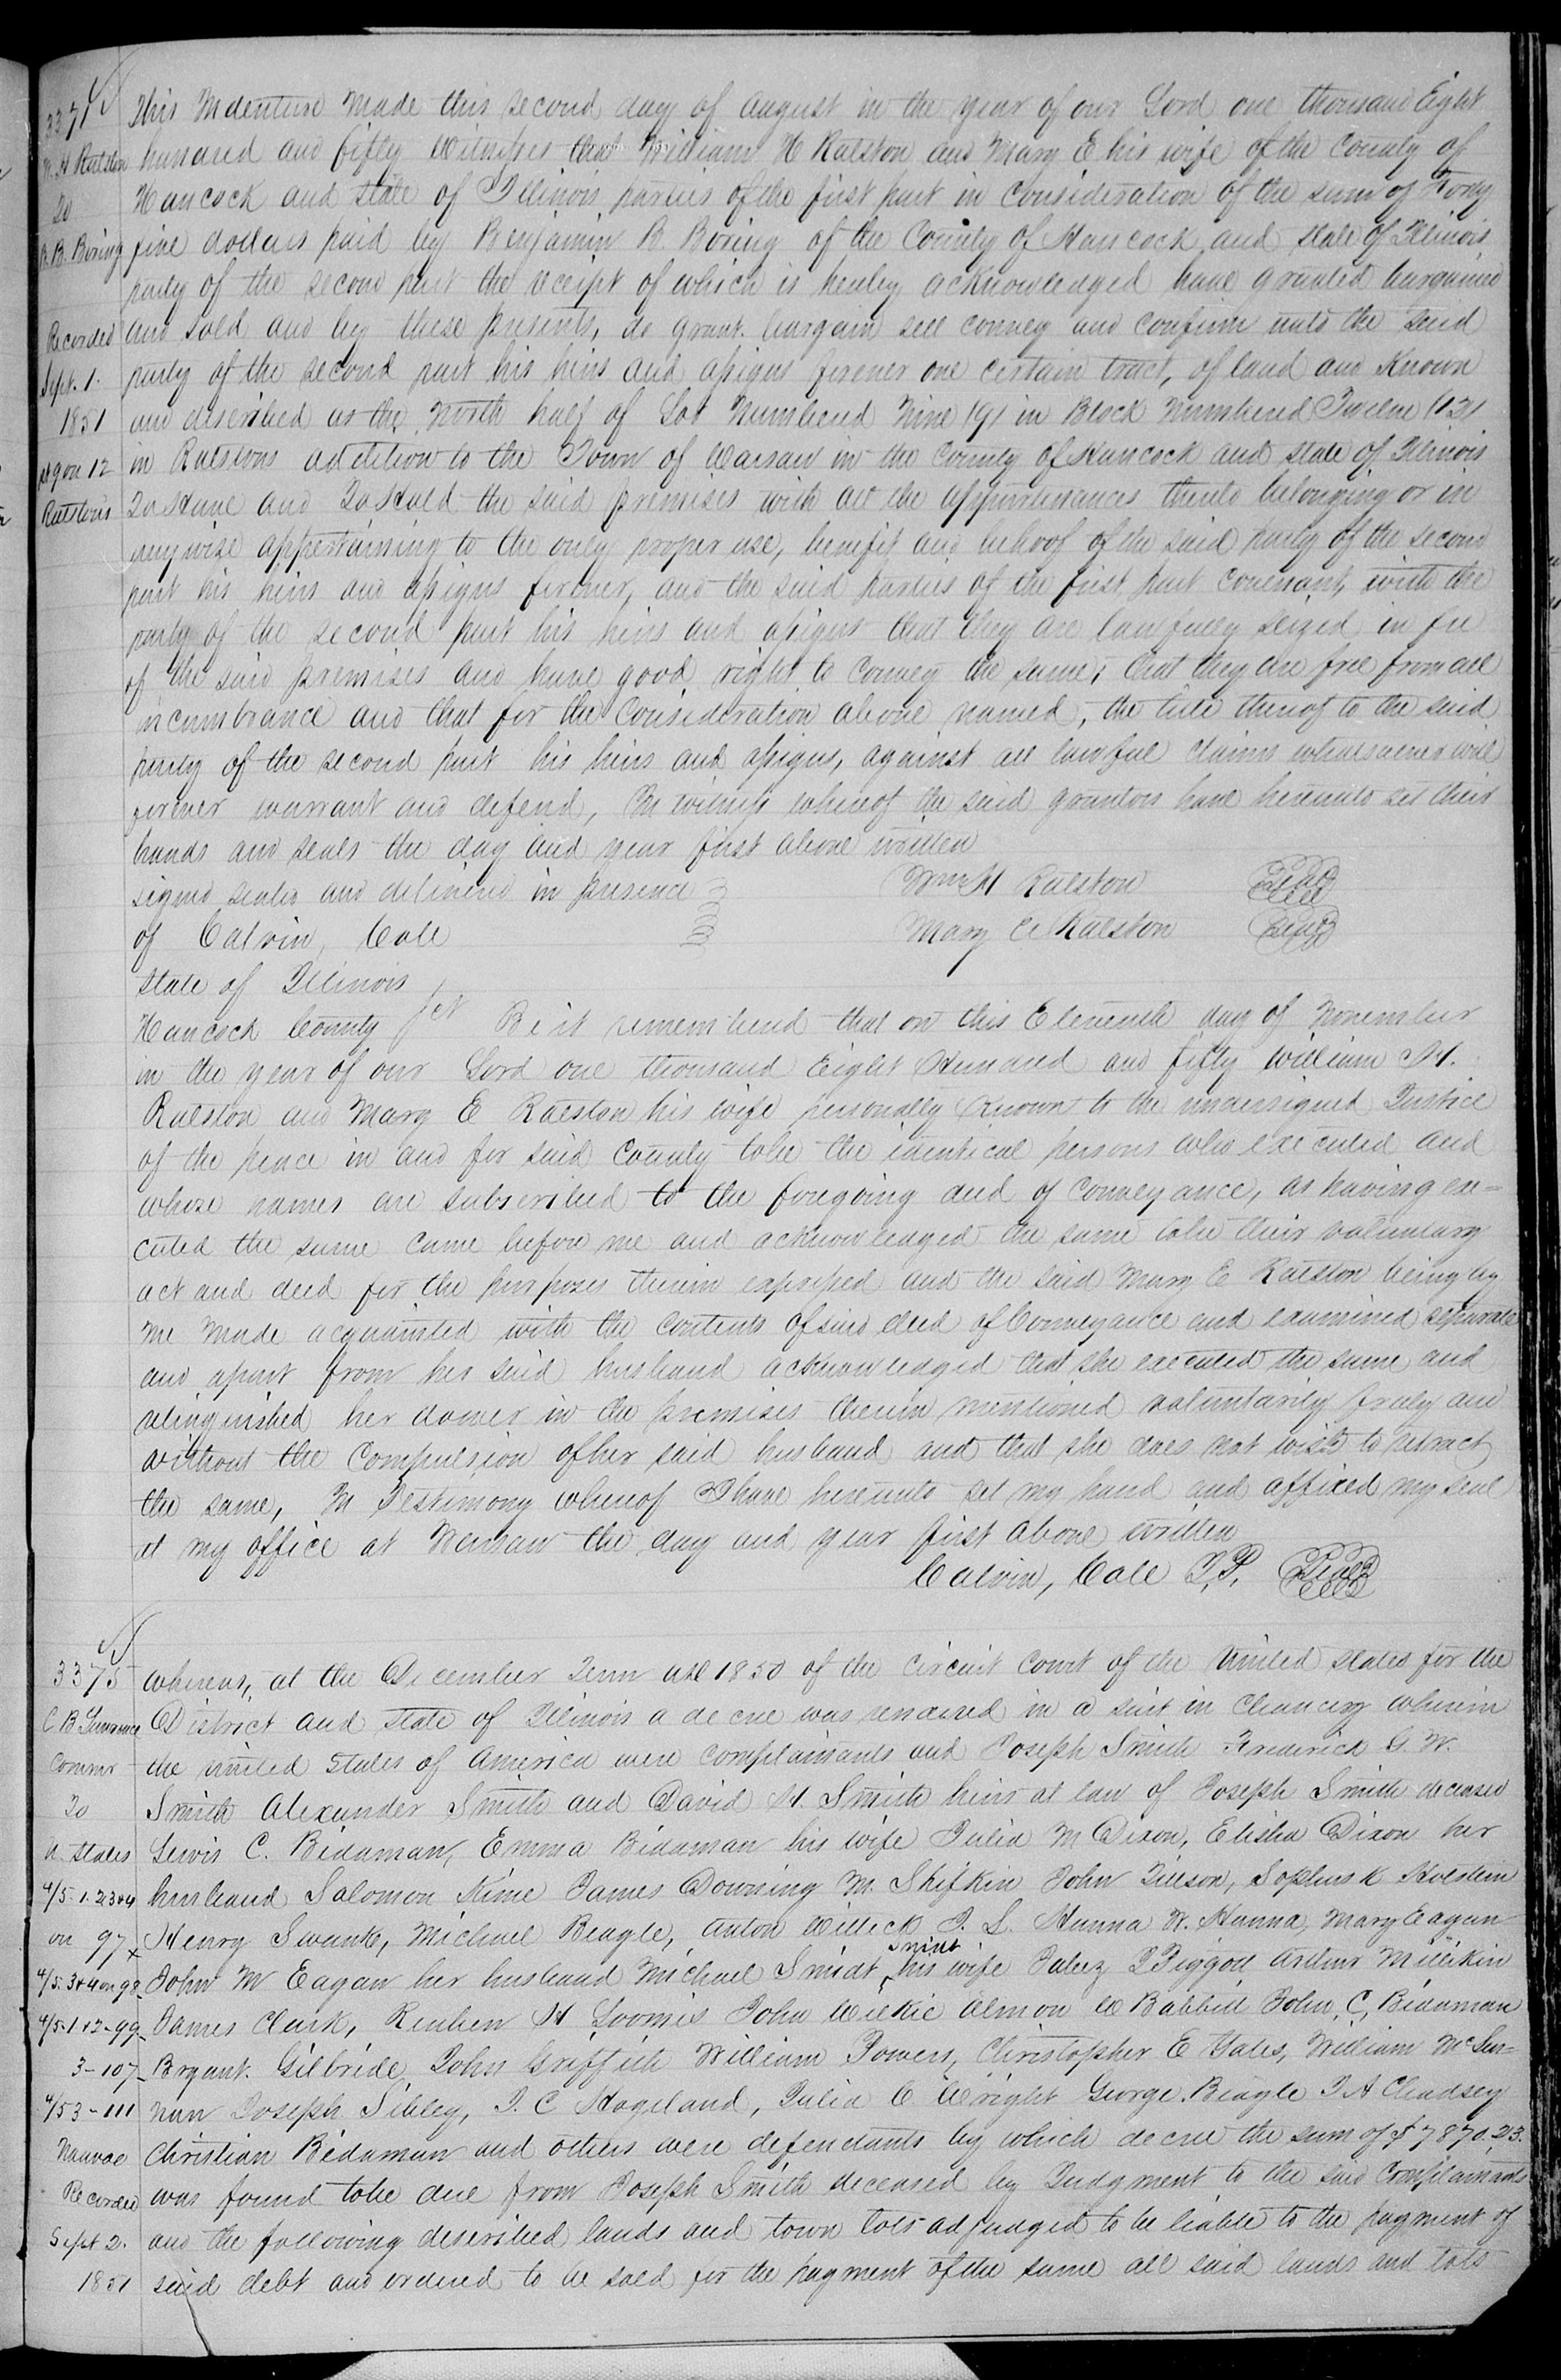 3371
W. H. Ralston
To
B. B. Boring
Recorded
Sept. 1.
1851
N 9 on 12
Ralston's
This Indenture Made this second day of August in the year of our Lord one thousand Eight
hundred and fifty Witnesses that William H Ralston and Mary E his wife of the County of
Hancock and state of Illinois parties of the first part in consideration of the sum of Forty
five dollars paid by Benjamin B. Boring of the County of Hancock and state of Illinois
party of the second part the receipt of which is hereby acknowledged have granted bargained
and sold and by these presents, do grant. bargain sell convey and confirm unto the said
party of the second part his heirs and assigns forever one certain tract, of land and Known
and described as the North half of Lot Numbered Nine (9) in Block Numbered Twelve (12)
in Ralstons addition to the Town of Warsaw in the County of Hancock and state of Illinois
To Have and To Hold the said premises with all the appurtenances thereto belonging or in
anywise appertaining to the only proper use, benefit and behoof of the said party of the second
part his heirs and assigns forever, and the said parties of the first part Covenant, with the
party of the second part his heirs and assigns that they are lawfully seized in fee
of the said premises and have good right to convey the same; that they are free from all
incumbrance and that for the Consideration above named, the title thereof to the said
party of the second part his heirs and assigns, against all lawful claims whatsoever will
forever warrant and defend, In witness whereof the said grantors have hereunto set their
hands and seals the day and year first above written
signed sealed and delivered in presence Wm H Ralston Seal
of Calvin, Cole Mary E Ralston Seal
State of Illinois
Hancock County Sct Be it remembered that on this Eleventh day of November
in the year of our Lord one thousand Eight Hundred and fifty William H.
Ralston and Mary E Ralston his wife personally Known to the undersigned Justice
of the peace in and for said County to be the identical persons who executed and
whose names are subscribed to the foregoing deed of conveyance, as having exe-
cuted the same came before me and acknowledged the same to be their voluntary
act and deed for the purposes therein expressed and the said Mary E Ralston being by
me made acquainted with the contents of said deed of Conveyance and examined separate
and apart from her said husband acknowledged that she executed the same and
relinquished her dower in the premises therein mentioned voluntarily freely and
without the compulsion of her said husband and that she does not wish to retract
the same, In Testimony whereof I have hereunto set my hand and affixed my seal
at my office at Warsaw the day and year first above written
Calvin, Cole J.P. Seal
3375
C B Lawrence
Commr
To
U. States
4/5. 1. 2 3 & 4
on 97
4/5. 3 & 4 on 98
4/5-1 & 2-99
3-107
4/5 3-111
Nauvoo
Recorded
Sept 2.
1851
whereas, at the December Term AD 1850 of the Circuit Court of the United States for the
District and state of Illinois a decree was rendered in a suit in Chancery wherein
the united States of America were complainants and Joseph Smith Frederick G. W.
Smith Alexander Smith and David H. Smith heirs at law of Joseph Smith deceased
Lewis C. Bidaman, Emma Bidaman his wife Julia M Dixon, Elisha Dixon her
husband Salomon Kime James Downing M. Shifkin John Tilson, Sophus K Holstein
Henry Swank, Michael Beagle, Anton Willick J. L. Hanna N. Hanna, Mary Eagan
John M Eagan her husband Michael Smidt Smidt his wife Jabez Piggott Arthur Millikin
James Clark, Reuben H Loomis John Wilkie Almon W Babbitt John, C, Bidaman
Bryant. Gilbride, John Griffith William Powers, Christopher E Yates, William McLen=
nan Joseph Sibley, J. C Hogeland, Julia C Wright George. Beagle J A Chadsey
Christian Bidaman and others were defendants by which decree the sum of $7870.23.
was found to be due from Joseph Smith deceased by Judgment to the said Complainants
and the following described lands and town lots adjudged to be liable to the payment of
said debt and ordered to be sold for the payment of the same all said lands and lots